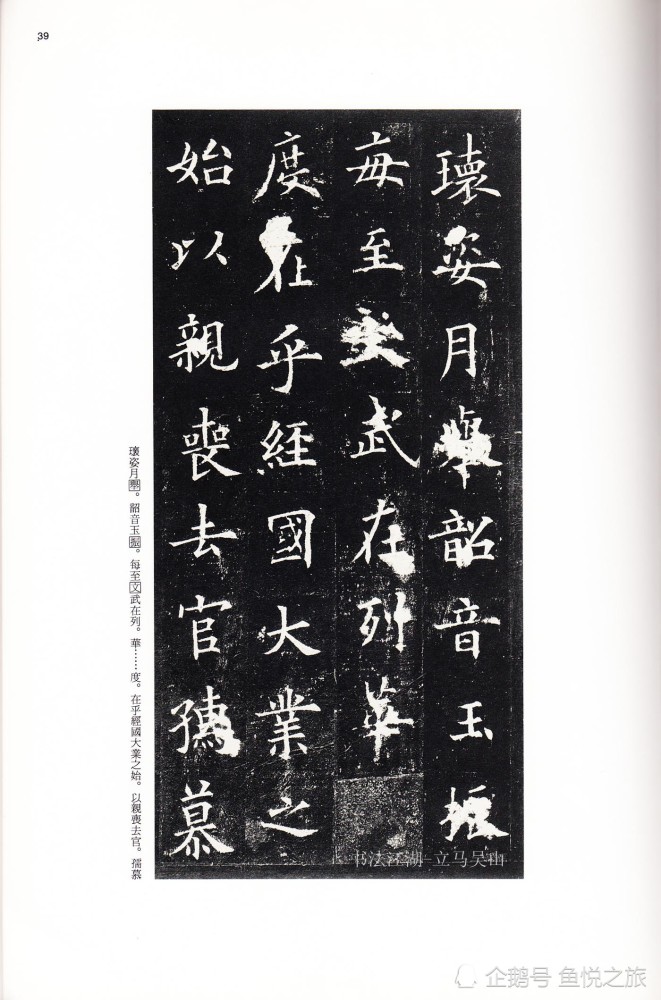 39
瓌姿月舉韶音玉振
每至文武在列華
度在乎經國大業之
始以親喪去官孺慕
瓌姿月舉。韶音玉振。每至文武在列。華……度。在乎經國大業之始。以親喪去官。孺慕
书法江湖-立马吴山
企鹅号 鱼悦之旅